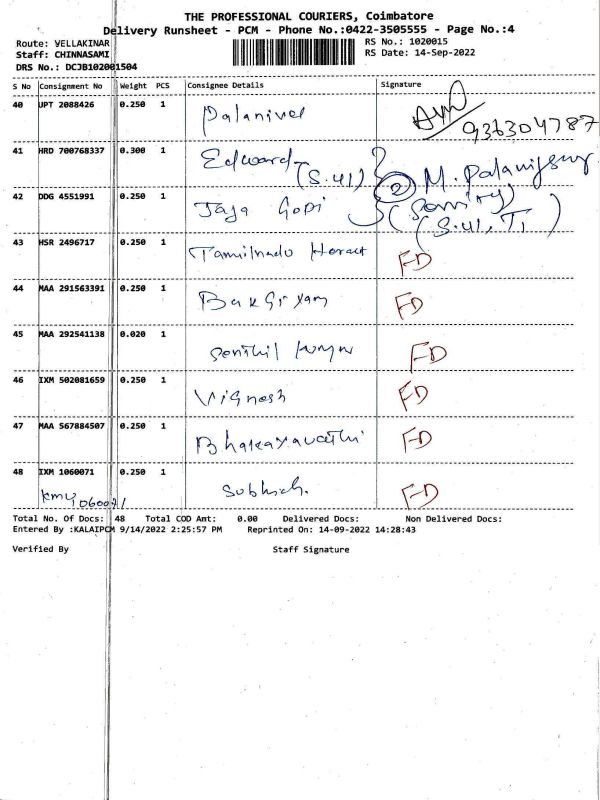 THE PROFESSIONAL COURIERS, Coimbatore
Delivery Runsheet - PCM - Phone No.:0422-3505555 - Page No.:4
Route: VELLAKINAR RS No.: 1020015
Staff: CHINNASAMI RS Date: 14-Sep-2022
DRS No.: DCJB102001504
S No Consignment No Weight PCS Consignee Details Signature
40 UPT 2088426 0.250 1 Palanivel 936304787
41 HRD 700768337 0.300 1 Edward (S.41) 2 M.
42 DDG 4551991 0.250 1 Jaja Gopi
43 HSR 2496717 0.250 1 Tamilnado FD
44 MAA 291563391 0.250 1 FD
45 MAA 292541138 0.020 1 FD
46 IXM 502081659 0.250 1 Vignesh FD
47 MAA 567884507 0.250 1 FD
48 IXM 1060071 0.250 1 FD
Total No. Of Docs: 48 Total COD Amt: 0.00 Delivered Docs: Non Delivered Docs:
Entered By :KALAIPCM 9/14/2022 2:25:57 PM Reprinted On: 14-09-2022 14:28:43
Verified By Staff Signature